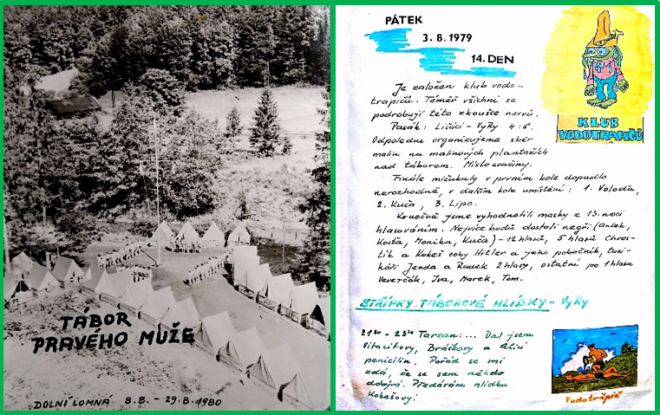 TÁBOR
PRAVÉHO MUŽE
DOLNÍ LOMNÁ 8.8. - 29.8.1980
PÁTEK
3.8.1979
14.DEN
KLUB
VODOTRAPIČŮ
Je založen klub vodo-
trapičů. Téměř všichni se
podrobují této zkoušce nervů.
Pasák: Lišáci - Výři 4:6.
Odpoledne organizujeme sběr
malin na malinových plantážích
nad táborem. Místo svačiny.
Finále v prvním kole dopadlo
nerozhodně, v dalším kole umístění: 1. Voloďa,
2. Kuča, 3. Lipo.
Konečně jsme vyhodnotili masky z 13. noci
hlasováním. Nejvíce bodů dostali negři (
Kosťa, Monika, Kuča) - 12 hlasů, 5 hlasů Chros-
tík a Kokeš coby Hitler a jeho pobočník,
Jenda a Radek 2 hlasy, ostatní po 1 hlase
Veverčák, Iva, Marek, Tom.
STŘÍPKY TÁBOROVÉ HLÍDKY - VÝŘI
Tarzan: ... Dal jsem
Bráškovy a
penicilin. Pořád se mi
zdá, že se sem někdo
dobývá. Předávám hlídku
Kokešovi!
Vodotrapič